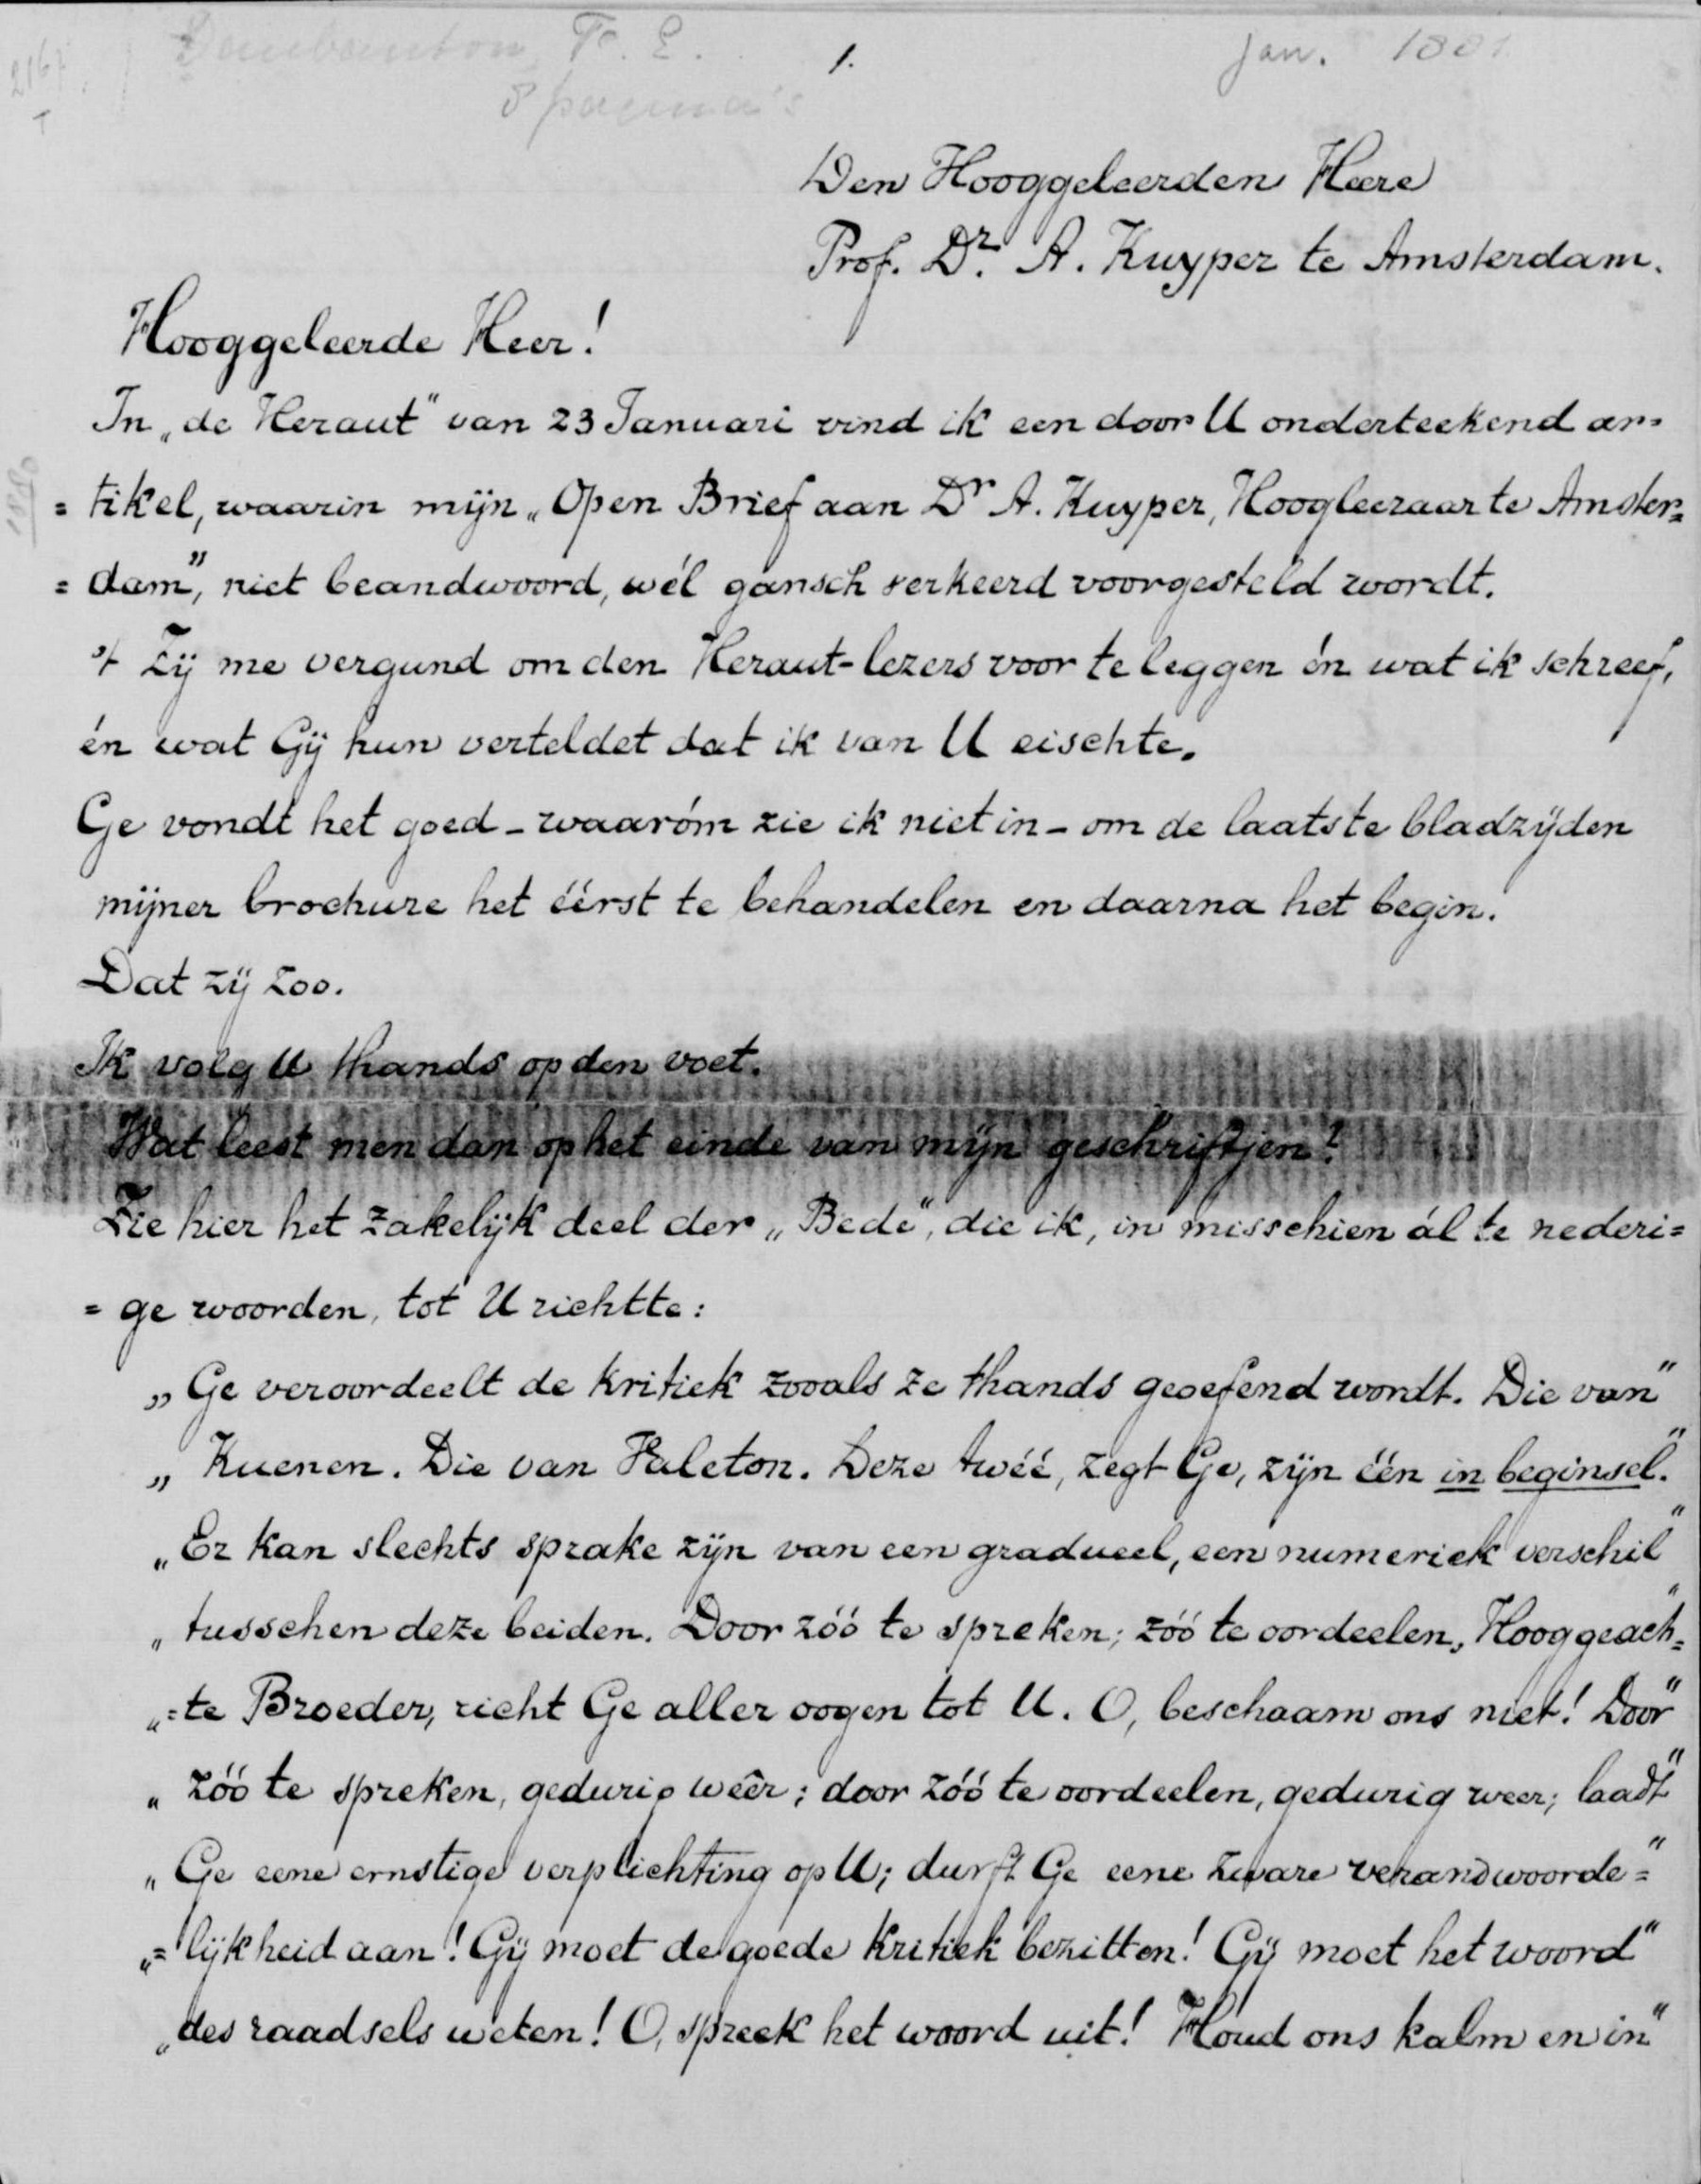 Daubanton, F. E.
1.
Jan. 1881
Den Hooggeleerden Heere
Prof. Dr. A. Kuyper te Amsterdam.
Hooggeleerde Heer!
In „de Heraut" van 23 Januari vind ik een door U onderteekend ar=
= tikel, waarin mijn „Open Brief aan Dr A. Kuyper, Hoogleeraar te Amster=
= dam", niet beandwoord, wél gansch verkeerd voorgesteld wordt.
't Zij me vergund om den Heraut-lezers voor te leggen én wat ik schreef,
én wat Gij hun verteldet dat ik van U eischte.
Ge vondt het goed - waaróm zie ik niet in - om de laatste bladzijden
mijner brochure het éérst te behandelen en daarna het begin.
Dat zij zoo.
Ik volg U thands op den voet.
Wat leest men dan op het einde van mijn geschriftjen?
Zie hier het zakelijk deel der „Bede", die ik, in misschien ál te nederi=
= ge woorden, tot U richtte:
„Ge veroordeelt de kritiek zooals ze thands geoefend wordt. Die van"
„Kuenen. Die van Valeton. Deze twéé, zegt Ge, zijn één in beginsel."
„Er kan slechts sprake zijn van een gradueel, een numeriek verschil"
„tusschen deze beiden. Door zóó te spreken; zóó te oordeelen, Hooggeach="
„=te Broeder, richt Ge aller oogen tot U. O, beschaam ons niet! Door"
„zóó te spreken, gedurig wêêr; door zóó te oordeelen, gedurig weer; laadt"
„Ge eene ernstige verplichting op U; durft Ge eene zware verandwoorde="
„=lijkheid aan! Gij moet de goede kritiek bezitten! Gij moet het woord"
„des raadsels weten! O, spreek het woord uit! Houd ons kalm en in"